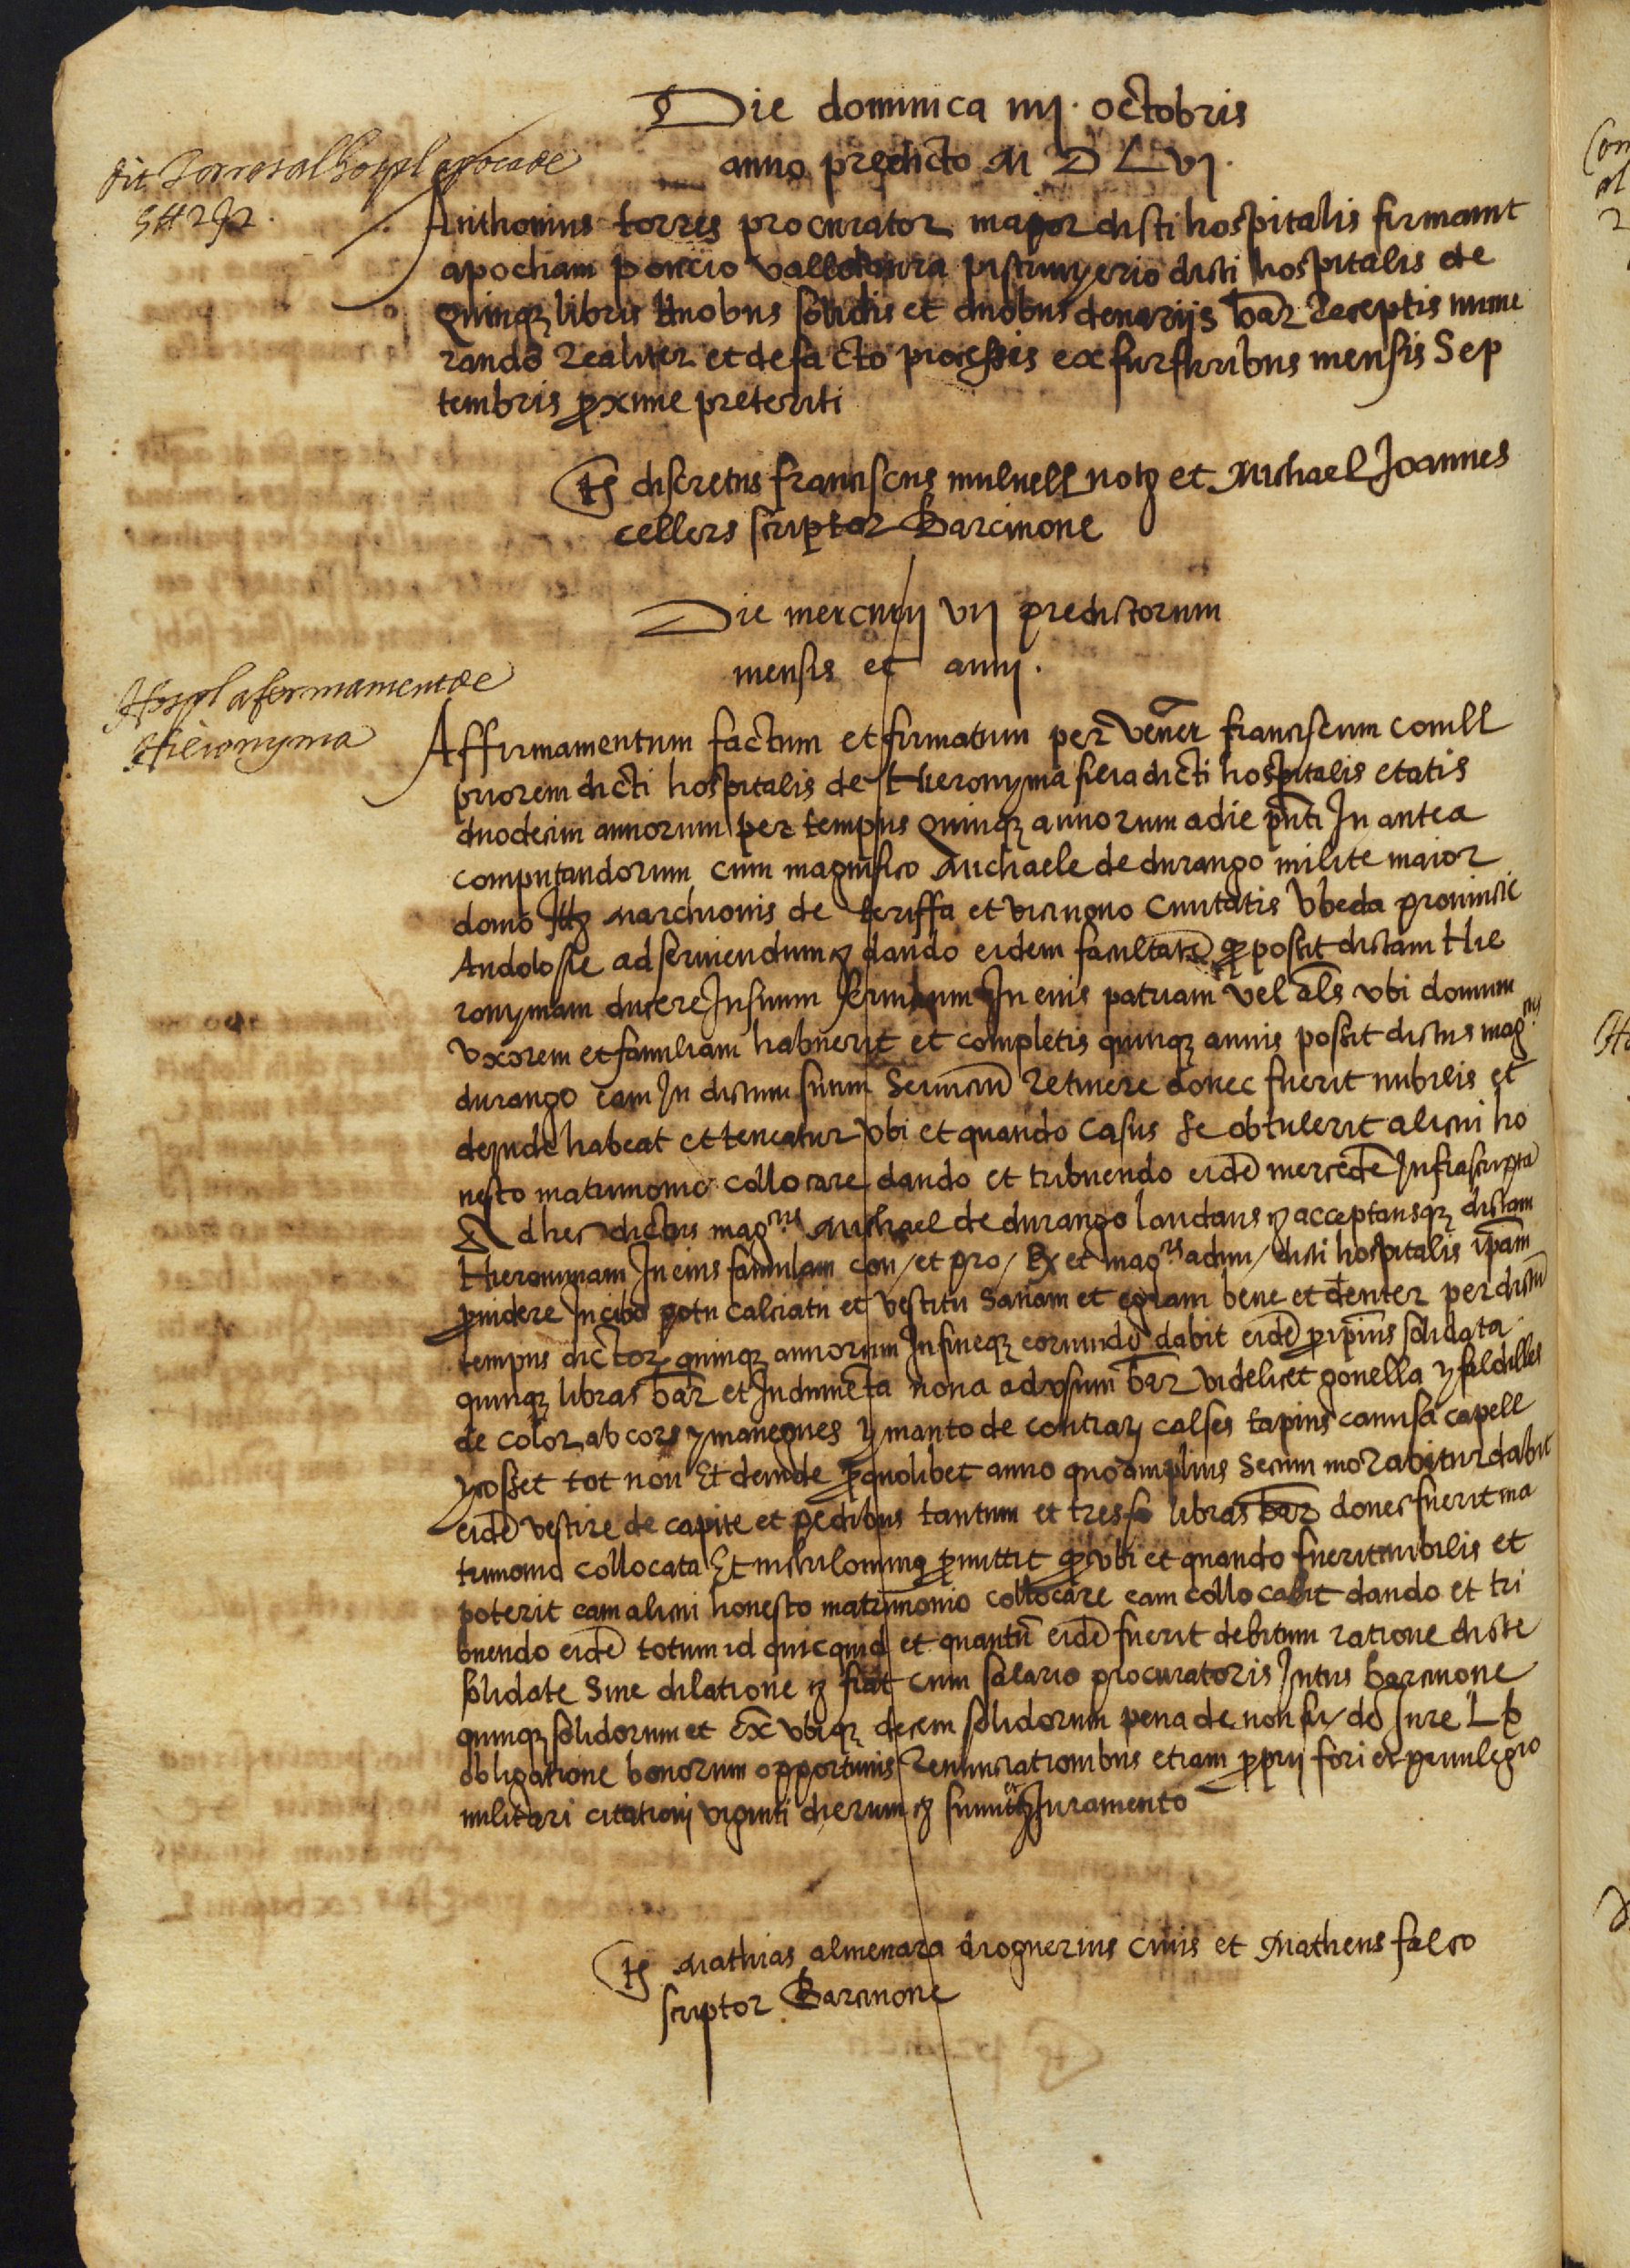 Die dominica iiij. octobris
anno predicto M D L vj.
dit Torres al hospl apocade
5 ₶ 2 ſ 2.
Anthonius torres procurator major dicti hospitalis firmavit
apocham poncio vallseura pistrinyerio dicti hospitalis de
Quinqȝ libris duobus solidis et duobus denariis bar receptis nume
rando realiter et defacto processis ex furfuribus mensis Sep
tembris pxime preteriti
Ts discretus franciscus mulnell notȝ et Michael Joannes
cellers scriptor Barcinone
Die mercurij vij predictorum
mensis et anni.
Hospl afermament de
Hieronyma
Affirmamentum factum et firmatum per vener franciscum comll
priorem dicti hospitalis de Hieronyma filia dicti hospitalis etatis
duodecim annorum per tempus Quinqȝ annorum a die pnti In antea
computandorum cum magnifico Michaele de durango milite maior
domo Illȝ Marchionis de teriffa et vicino Civitatis Vbeda provincie
Andolosie ad serviendum ȝ dando eidem facultate q possit dictam Hie
ronymam ducere In suum servicium In eius patriam vel als vbi domum
vxorem et familiam habuerit et completis quinqȝ annis possit dictus magcus
durango eam In dictum suum Serviciu retinere donec fuerit nubilis et
deinde habeat et teneatur vbi et quando Casus se obtulerit alicui ho
nesto matrimonio collocare dando et tribuendo eide mercede Infrascripta
Ad hec dictus magcus Michael de durango laudans ȝ acceptansqȝ dictam
Hieronimam In eius famulam con / et pro / Ex et magcis admi / dicti hospitalis ipam
pvidere In cibo potu calciatu et vestitu Sanam et egram bene et denter per dictu
tempus dictoꝝ quinqȝ annorum In fineqȝ eorumdē dabit eidē p ipius solidata
quinqȝ libras bar et Indumēta nova ad vsum bar videlicet gonella y faldilles
de color ab cors y manegues y manto de contray calses tapins camisa capell
y cosset tot nou Et deinde pquolibet anno quo amplius Secum morabitur dabit
eidē vestire de capite et pedibus tantum et tres libras bar donec fuerit ma
trimonio collocata Et nihilominqȝ pmittit q vbi et quando fuerit nubilis et
poterit eam alicui honesto matrimonio collocare eam collocabit dando et tri
buendo eidē totum id quicquid et quantū eidē fuerit debitum ratione dicte
solidate Sine dilatione ȝ fiat Cum salario procuratoris Intus barcinone
quinqȝ solidorum et Ex vbiqȝ decem solidorum pena de non fir / de Jure L b
obligatione bonorum opportunis renunciationibus etiam pprij fori et privilegio
militari citationj viginti dierum ȝ Juramento
Ts Mathias almenara droguerius civis et Matheus falco
scriptor Barcinone